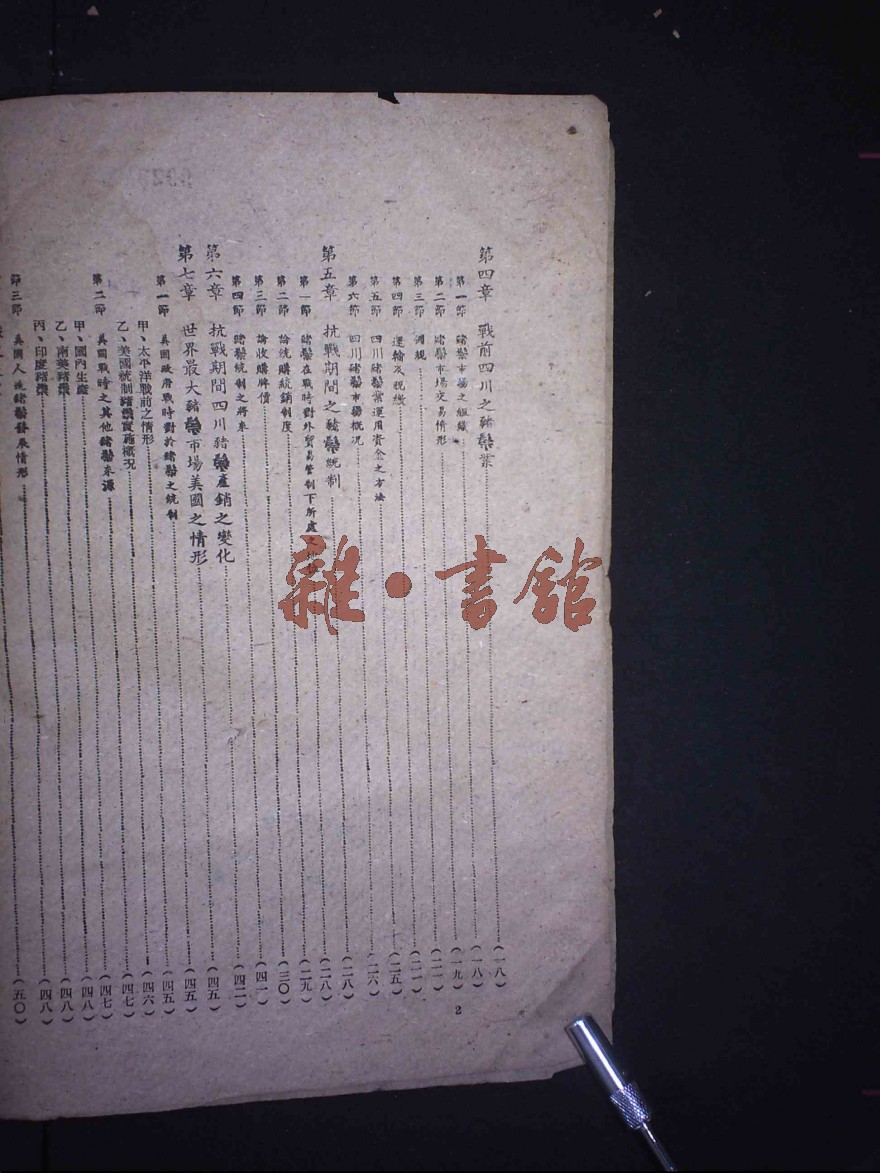 第四章 戰前四川之豬鬃業……(一八)
第一節 豬鬃市場之組織……(一八)
第二節 豬鬃市場交易情形……(一九)
第三節 捐稅……(二一)
第四節 運輸及稅繳……(二一)
第五節 四川豬鬃業運用資金之方法……(二五)
第六節 四川豬鬃市場概況……(二六)
第五章 抗戰期間之豬鬃統制……(二八)
第一節 豬鬃在戰時對外貿易管制下所處之……(二八)
第二節 論統購統銷制度……(二九)
第三節 論收購牌價……(三〇)
第四節 豬鬃統制之將來……(四一)
第六章 抗戰期間四川豬鬃產銷之變化……(四二)
第七章 世界最大豬鬃市場美國之情形……(四五)
第一節 美國政府戰時對於豬鬃之統制……(四五)
甲、太平洋戰前之情形……(四五)
乙、美國統制豬鬃實施概況……(四六)
第二節 美國戰時之其他豬鬃來源……(四七)
甲、國內生產……(四七)
乙、南美豬鬃……(四八)
丙、印度豬鬃……(四八)
第三節 美國人造豬鬃發展情形……(四八)
(五〇)
2
雜·書館